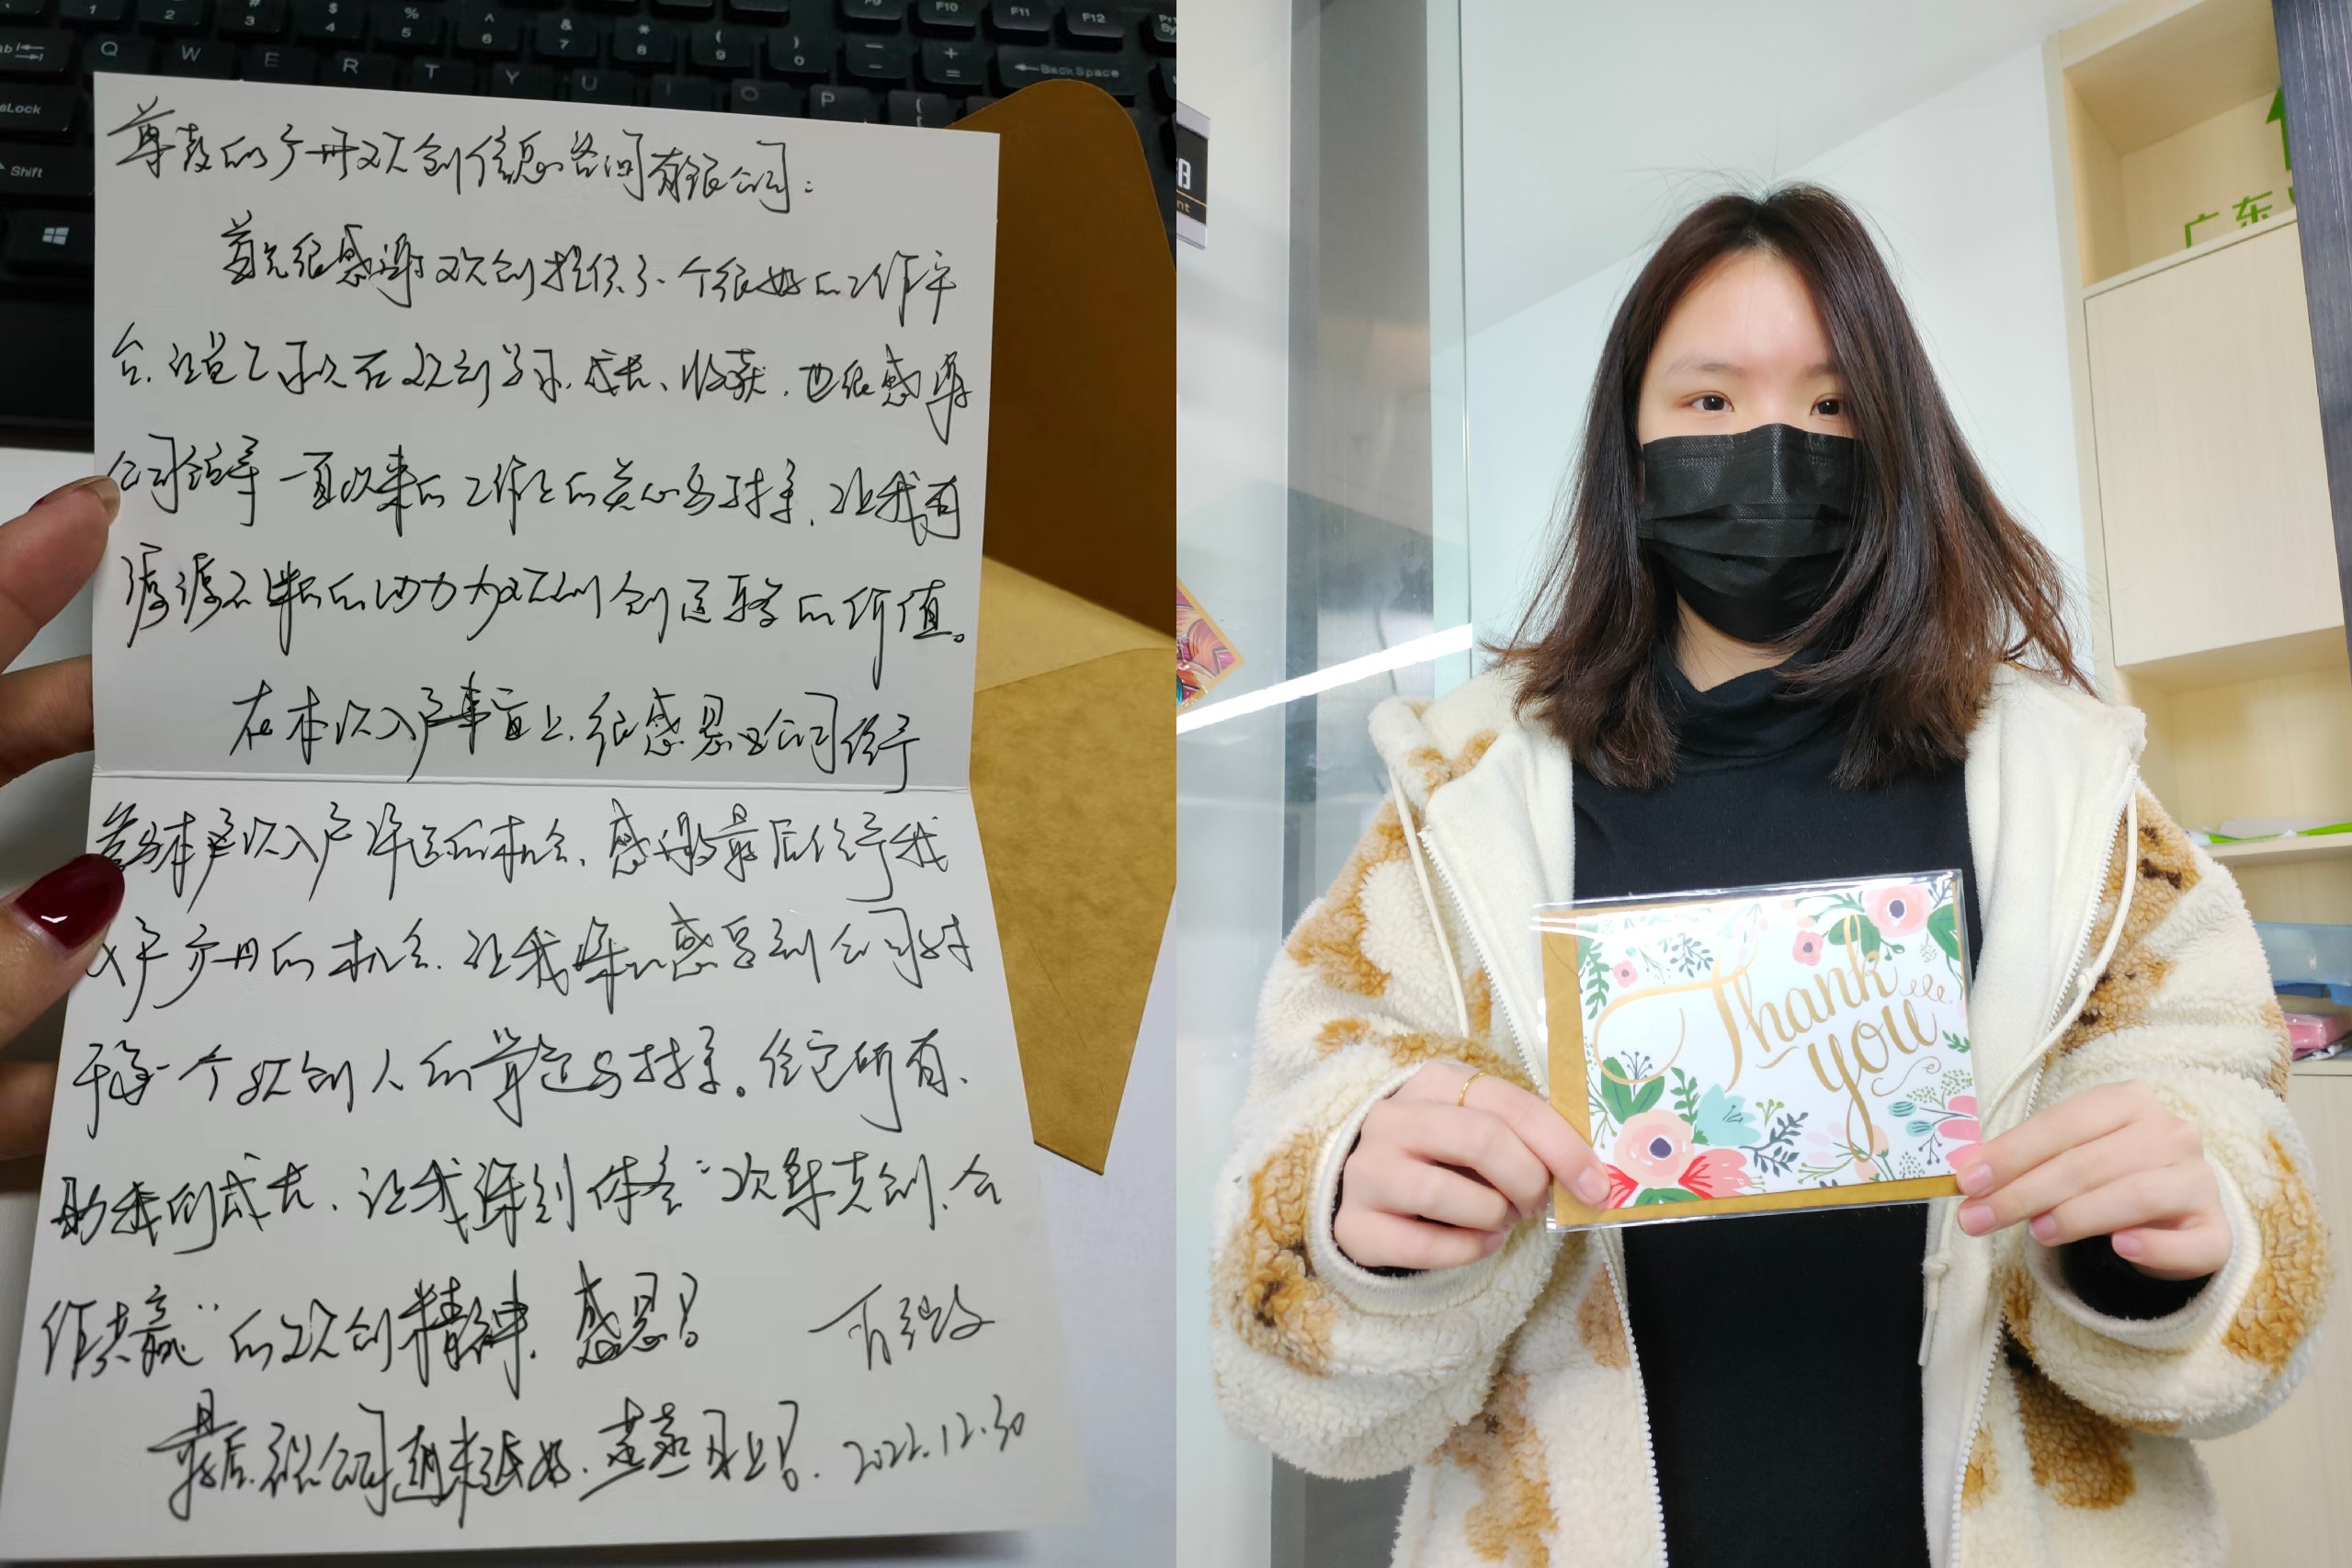 尊敬的广州欢创信息咨询有限公司:
首先很感谢欢创提供了一个很好的工作平
台,让自己可以在欢创学习、成长、收获,也很感恩
公司领导一直以来的工作上的关心与扶持,让我有
源源不断的动力为欢创创造更多的价值。
在本次入户事宜上,很感恩公司给予
参与本次入户评选的机会,感谢最后给予我
入户广州的机会,让我深深感受到公司对
于每一个欢创人的肯定与扶持。给我所有、
助我的成长,让我深刻体会"欢乐克创、合
作共赢"的欢创精神,感恩!
最后,祝公司越来越好,蒸蒸日上!
2022.12.30
Thank
you
广东
Q W E R T Y U I O P
BackSpace
Shift
F10 F11 F12